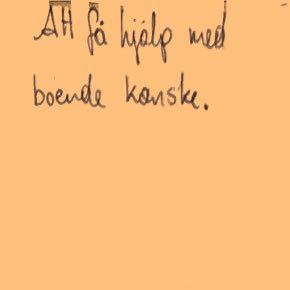 Att få hjälp med
boende kanske.